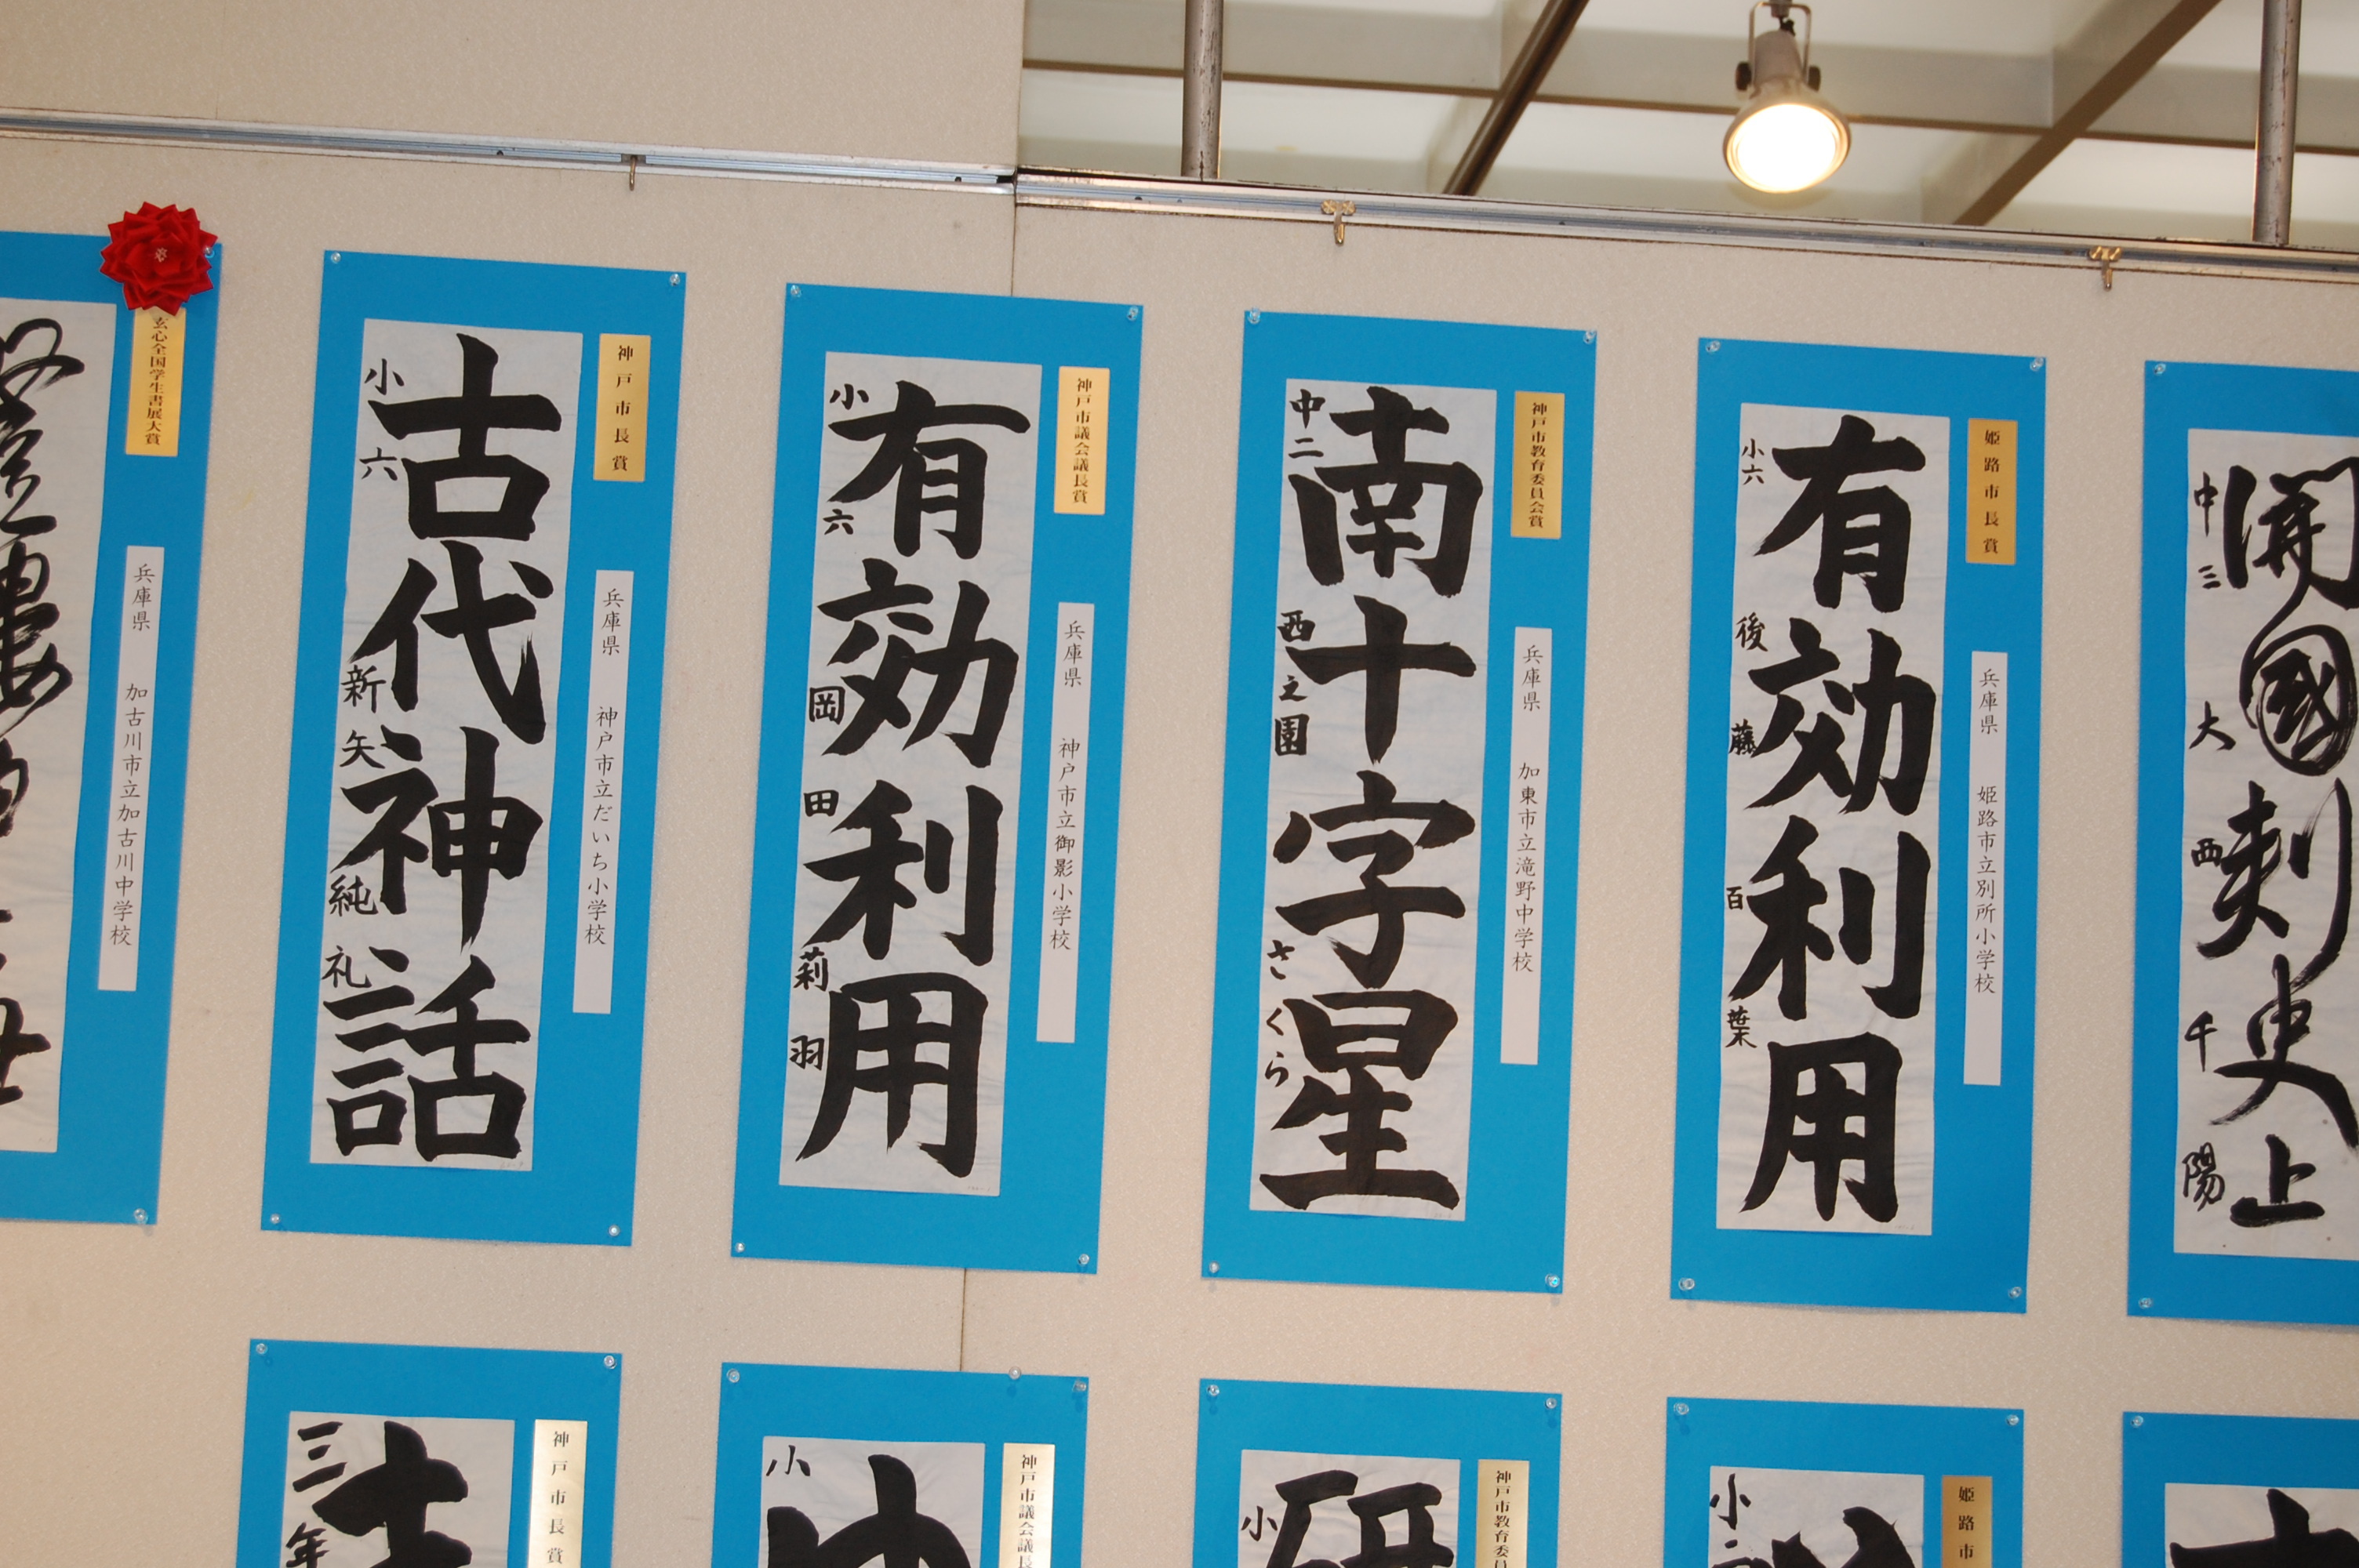 玄心全国学生書展大賞
兵庫県 加古川市立加古川中学校
神戸市長賞
兵庫県 神戸市立だいち小学校
古代神話
小六 新矢純礼
神戸市議会議長賞
兵庫県 神戸市立御影小学校
有効利用
小六 岡田莉羽
神戸市教育委員会賞
兵庫県 加東市立滝野中学校
南十字星
中二 西之園さくら
姫路市長賞
兵庫県 姫路市立別所小学校
有効利用
小六 後藤百葉
開國刺史上
中三 大西千陽
神戸市長賞
三年
神戸市議会議長
小
神戸市教育委員
小
姫路市
小